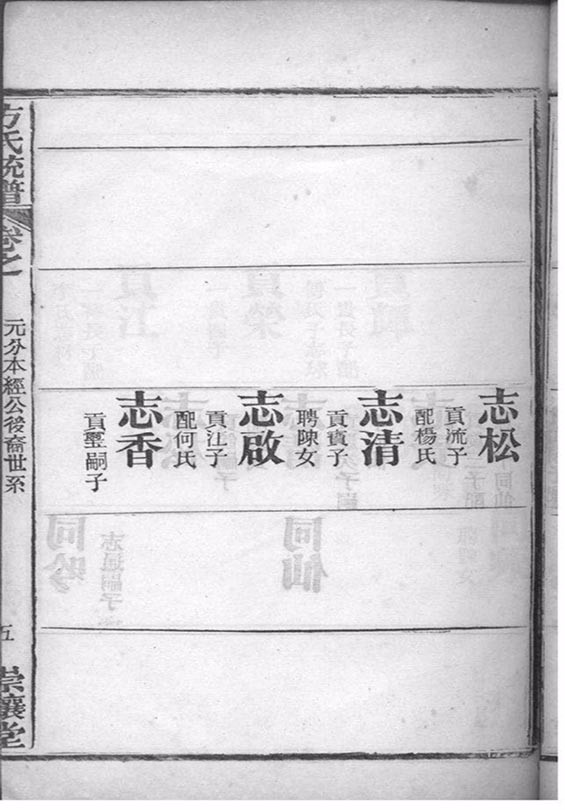 志松
貢流子
配楊氏
志清
貢賓子
聘陳女
志啟
貢江子
配何氏
志香
貢璽嗣子
方氏統譜
卷之
元分本經公後裔世系
五
崇讓堂